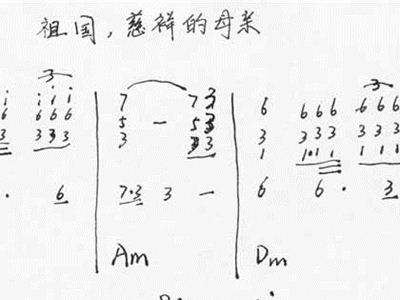 祖国,慈祥的母亲
3 3
i i i i | 7 7 3 | 6 6 6 6 6 6 6
6 6 6 6 | 5 — 5 3 | 3 3 3 3 3 3 3
3 3 3 3 | 3 3 3 | 1 1·1 1 1 1 1
· 6 | 7·3 3 — | 6 6 · 3
Am Dm